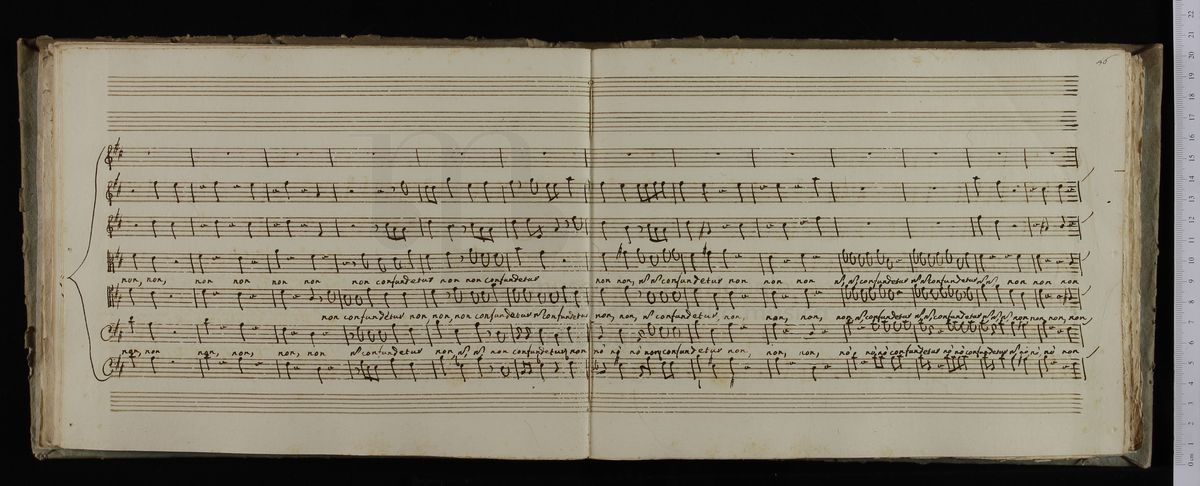 non, non, non non non non non confundetur non non confundetur non non, nō nō confundetur non non non nō, nō, confundetur nō nō confundetur nō nō non non non
non confundetur non non, non confundetur nō confundetur non, non, nō confundetur, non, non, non, non nō confundetur nō, nō, confundetur nō, nō, nō non non non, non,
non, non non, non, non, non nō confundetur non nō, nō non confundetur non nō nō nō non confundetur non, non, non, nō nō, nō confundetur nō nō confundetur nō, nō, nō non